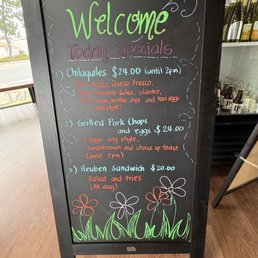 Welcome
Today Specials
1) Chilaquiles $24.00 (until 2pm)
Queso Fresco,
salsa, cilantro,
tortilla chips and two eggs
any style)
2) Grilled Pork Chops
and eggs $24.00
(eggs any style,
hashbrown and choice of toast.
(until 2pm)
3) Reuben Sandwich $20.00
Salad and fries
(All day)